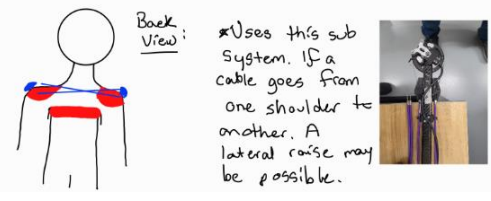 Back
View:
*Uses this sub
System. If a
cable goes from
one shoulder to
another. A
lateral raise may
be possible.